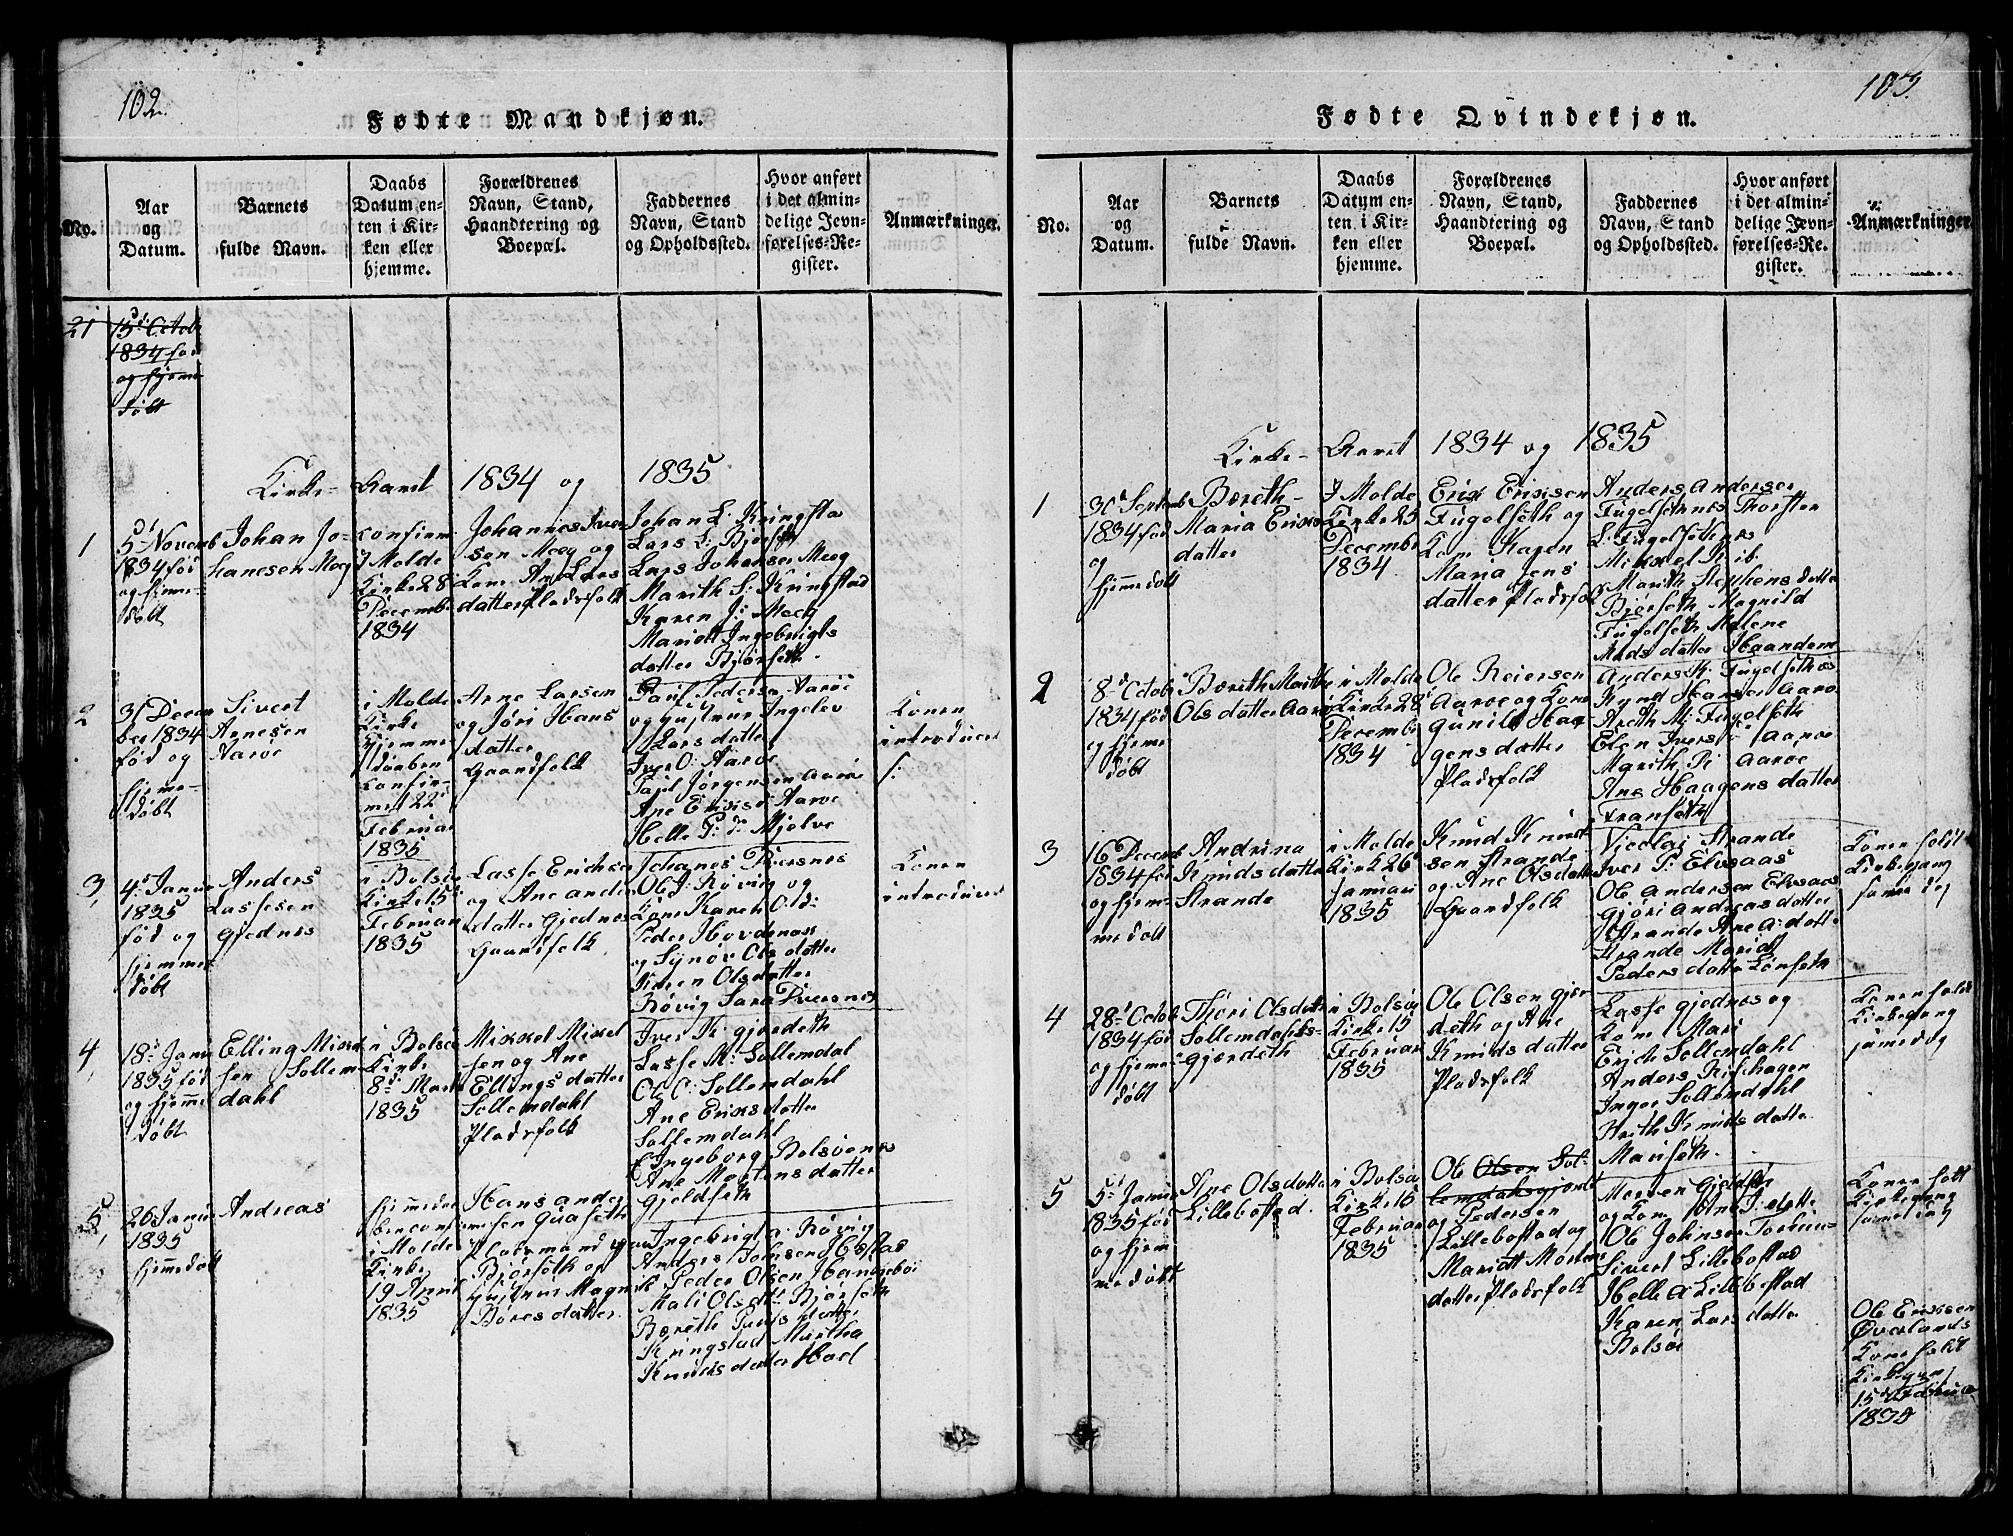 102.
Fødte Mandkjøn.
No.
Aar
og
Datum.
Barnets
fulde Navn.
Daabs
Datum en-
ten i Kir-
ken eller
hjemme.
Forældrenes
Navn, Stand,
Haandtering og
Boepæl.
Faddernes
Navn, Stand
og Opholdssted.
Hvor anført
i det almin-
delige Jevn-
førelses-Re-
gister.
Anmærkninger.
21
15d Octob
1834 fød
og hjeme
døbt
Kirke- Aaret 1834 og 1835
1
5d Novemb
1834 fød
og hjeme-
døbt
Johan Jo-
hanesen Moeg
confirm
I Molde
Kirke 28
Decemb
1834
Johannes Iver
sen Moeg og
Kone Ane Lars
datter Pladsfolk
Johan L: Kringsta
Lars L: Bjørseth
Lars Johansen Moeg
Marith S: Kringstad
Karen J: Moeg
Mariatt Ingebrigts
datter Bjørseth
2
31 Decem
ber 1834
fød og
hjeme-
døbt
Sivert
Arnesen
Aarøe
i Molde
Kirke
Hjemme
daaben
Confir-
met 22d
Februar
1835
Arne Larsen
og Jøri Hans
datter
Gaardfolk
Poul Pedersen Aarøe
og Hustrue Ingebor
Lars datter
Iver O: Aarøe
Poul Jørgensen Aarøe
Ane Eriks d Aarøe
Helle P: d: Mjelve
Konen
introducert
3,
4d Januar
1835
fød og
hjemme
døbt
Anders
Lassesen
Gjednes
i Bolsø
Kirke 15d
Februar
1835
Lasse Erichsen
og Ane Anders
datter Gjednes
Gaardfolk
Johanes Tversnes
Ol J: Røvig og
Kone Karen O: d:
Peder Hovdenak
og Synøv Ols datter
Karen Olsdatter
Røvig Sara Tversnes
Konen
introducert
4,
18d Janu
1835 fød
og hjemme
døbt
Elling Mikkel
sen Sollem-
dahl
i Bolsø
Kirke
8d Marts
1835
Mikkel Mikel
sen og Ane
Ellings datter
Sollemdahl
Pladsfolk
Iver K: Gjerdeth
Lasse M: Sollemdal
Ol O: Sollemdahl
Ane Eriksdatter
Sollemdahl
Ingeborg Bolsøenes
Ane Mortens datter
Gjeldseth
5,
26 Januar
1835
hjemedøbt
Andreas
hjemmedaa
ben conf
i Molde
Kirke
19 April
1835
Hans Ander
sen Gujseth
Pladsmand
Bjørseth og
Hustrue Magnild
Børes datter
Ingebrigt A: Røvig
Anders Johnsen Ekstad
Peder Olsen Haugebøe
Mali Ols dtr Bjørseth
Bereth Pouls datter
Kringstad Martha
Knuds datter Hoel
103.
Fødte Qvindekjøn.
No.
Aar
og
Datum.
Barnets
fulde Navn.
Daabs
Datum en-
ten i Kir-
ken eller
hjemme.
Forældrenes
Navn, Stand,
Haandtering og
Boepæl.
Faddernes
Navn, Stand
og Opholdssted.
Hvor anført
i det almin-
delige Jevn-
førelses-Re-
gister.
Anmærkninger.
Kirke- Aaret 1834 og 1835
1
30d Septemb
1834 fød
og
hjemedøbt
Bereth-
Maria Eriks
datter
I Molde
Kirke 25
Decembr
1834
Erik Eriksen
Fugelseth og
Kone Karen
Maria Jens
datter Pladsfolk
Anders Andersen
Fugelsethnes Thorsten
L: Fugelsethnes
Mikkel Rib
Marith Stephens datter
Bjørseth Magnild
Fugelseth Malene
Mads datter Haandem
2
8d Octob
1834 fød
og hjeme
døbt
Bereth Marith
Ols datter Aarø
i Molde
Kirke 28d
Decembr
1834
Ole Reiersen
Aarøe og Kone
Gunild Haa-
gensdatter
Pladsfolk
Anders K: Fugelsethnes
Knud Hansen Aarø
Areth M: Fugelseth
Elen Ivers d Aarøe
Marith R: Aarøe
Ane Haagens datter
Franseth
3
16 Decemb
1834 fød
og hjem-
medøbt
Andrina
Knudsdatter
Strande
i Molde
Kirke 26d
Januar
1835
Knud Knud-
sen Strande
og Ane Olsdatter
Gaardfolk
Nicolai Strande
Iver P: Elvsaas
Ole Andersen Elvsaas
Gjøri Andreasdatter
Strande Ane A: datter
Strande Maria
Peders datter Lønseth
Konen holdt
Kirkegang
same dag
4
28d Octob
1834 fød
og hjeme-
døbt
Thøri Olsdatter
Sollemdahls-
gjerdeth
i Bolsø
Kirke 15
Februar
1835
Ole Olsen Gjer
deth og Ane
Knudsdatter
Pladsfolk
Lasse Gjednes og
Kone Mari
Erich Sollemdahl
Anders Rishagen
Inger Sollemdahl
Areth Knudsdatter
Mariseth.
Konen holdt
Kirkegang
samedag
5
5d Januar
1835 fød
og hjem
medøbt
Ane Olsdatter
Lillebostad.
i Bolsø
Kirke 15
Februar
1835
Ole Olsen Sol-
lemdalsgjerdt
Pedersen
Lillebostad og
Mariatt Mortens
datter Pladsfolk
Morten Gjeldseth
og Kone Ane P: datter
Ole Johnsen Torhus-
Sivert Lillebostad
Helle A Lillebostad
Karen Lars datter
Bolsø
Konen holt
Kirkegang
samedag
Ole Eriksen
Øverlands
Kone holdt
Kirkegang
15d Februar
1835